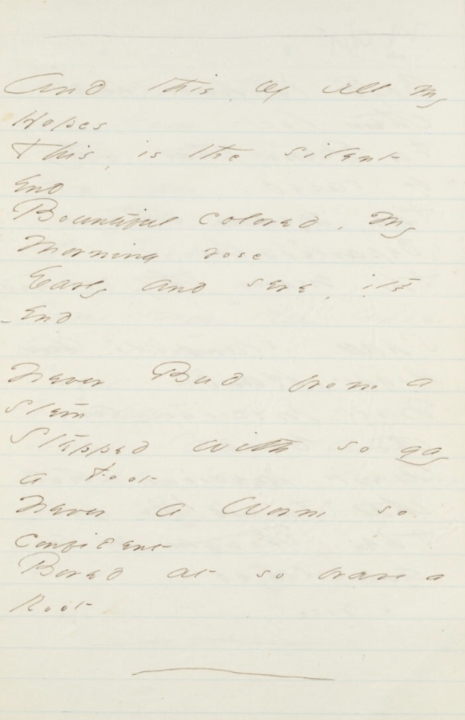 And this, of all my
Hopes
This, is the silent
End
Bountiful colored, My
Morning rose
Early and sere, it's
End

Never Bud from a
Stem
Stepped with so gay
a Foot
Never a Worm so
confident
Bored at so brave a
Root